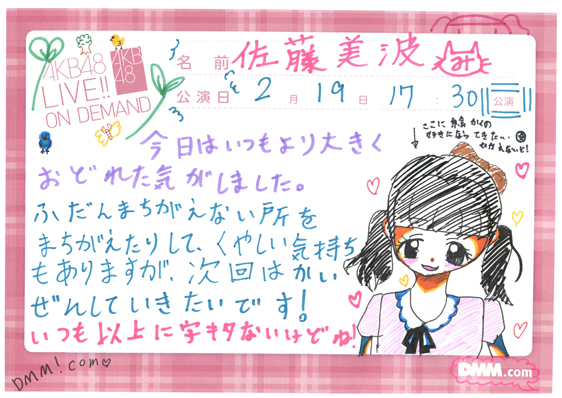 AKB48
LIVE!!
ON DEMAND
AKB
48
名前 佐藤美波
公演日 2月19日 17:30 公演
ここに絵かくの
好きになってきたっ、
ひかえないと!
今日はいつもより大きく
おどれた気がしました。
ふだんまちがえない所を
まちがえたりして、くやしい気持ち
もありますが、次回はかい
ぜんしていきたいです!
いつも以上に字キタないけどね!
DMM!.com
DMM.com